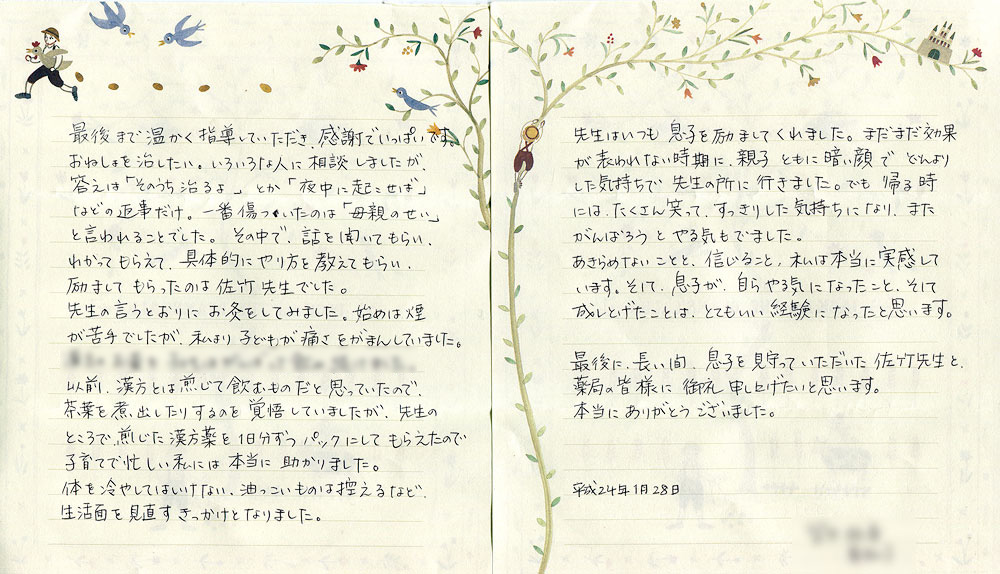 最後まで温かく指導していただき感謝でいっぱいです。
おねしょを治したい。いろいろな人に相談しましたが、
答えは「そのうち治るよ」とか「夜中に起こせば」
などの返事だけ。一番傷ついたのは「母親のせい」
と言われることでした。その中で、話を聞いてもらい、
わかってもらえて、具体的にやり方を教えてもらい、
励ましてもらったのは佐竹先生でした。
先生の言うとおりにお灸をしてみました。始めは煙
が苦手でしたが、私より子どもが痛さをがまんしていました。
以前、漢方とは煎じて飲むものだと思っていたので、
茶葉を煮出したりするのを覚悟していましたが、先生の
ところで、煎じた漢方薬を1日分ずつパックにしてもらえたので
子育てで忙しい私には本当に助かりました。
体を冷やしてはいけない、油っこいものは控えるなど、
生活面を見直すきっかけとなりました。
先生はいつも息子を励ましてくれました。まだまだ効果
が表われない時期に、親子ともに暗い顔でどんより
した気持ちで先生の所に行きました。でも帰る時
には、たくさん笑って、すっきりした気持ちになり、また
がんばろうとやる気もでました。
あきらめないことと、信じること、私は本当に実感して
います。そして、息子が、自らやる気になったこと、そして
成しとげたことは、とてもいい経験になったと思います。
最後に、長い間、息子を見守っていただいた佐竹先生と、
薬局の皆様に御礼申し上げたいと思います。
本当にありがとうございました。
平成24年1月28日